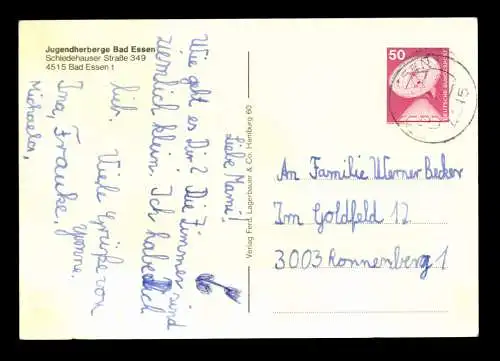 Jugendherberge Bad Essen
Schledehauser Straße 349
4515 Bad Essen 1
Liebe Mami!
Wie geht es Dir? Die Zimmer sind
ziemlich klein. Ich habe dich
lieb. Viele Grüße von
Ina, Frauke, Yvonne.
Michaela,
Verlag Ferd. Lagerbauer & Co. Hamburg 60
50
DEUTSCHE BUNDESPOST
An Familie Werner Becker
Im Goldfeld 12
3003 Ronnenberg 1